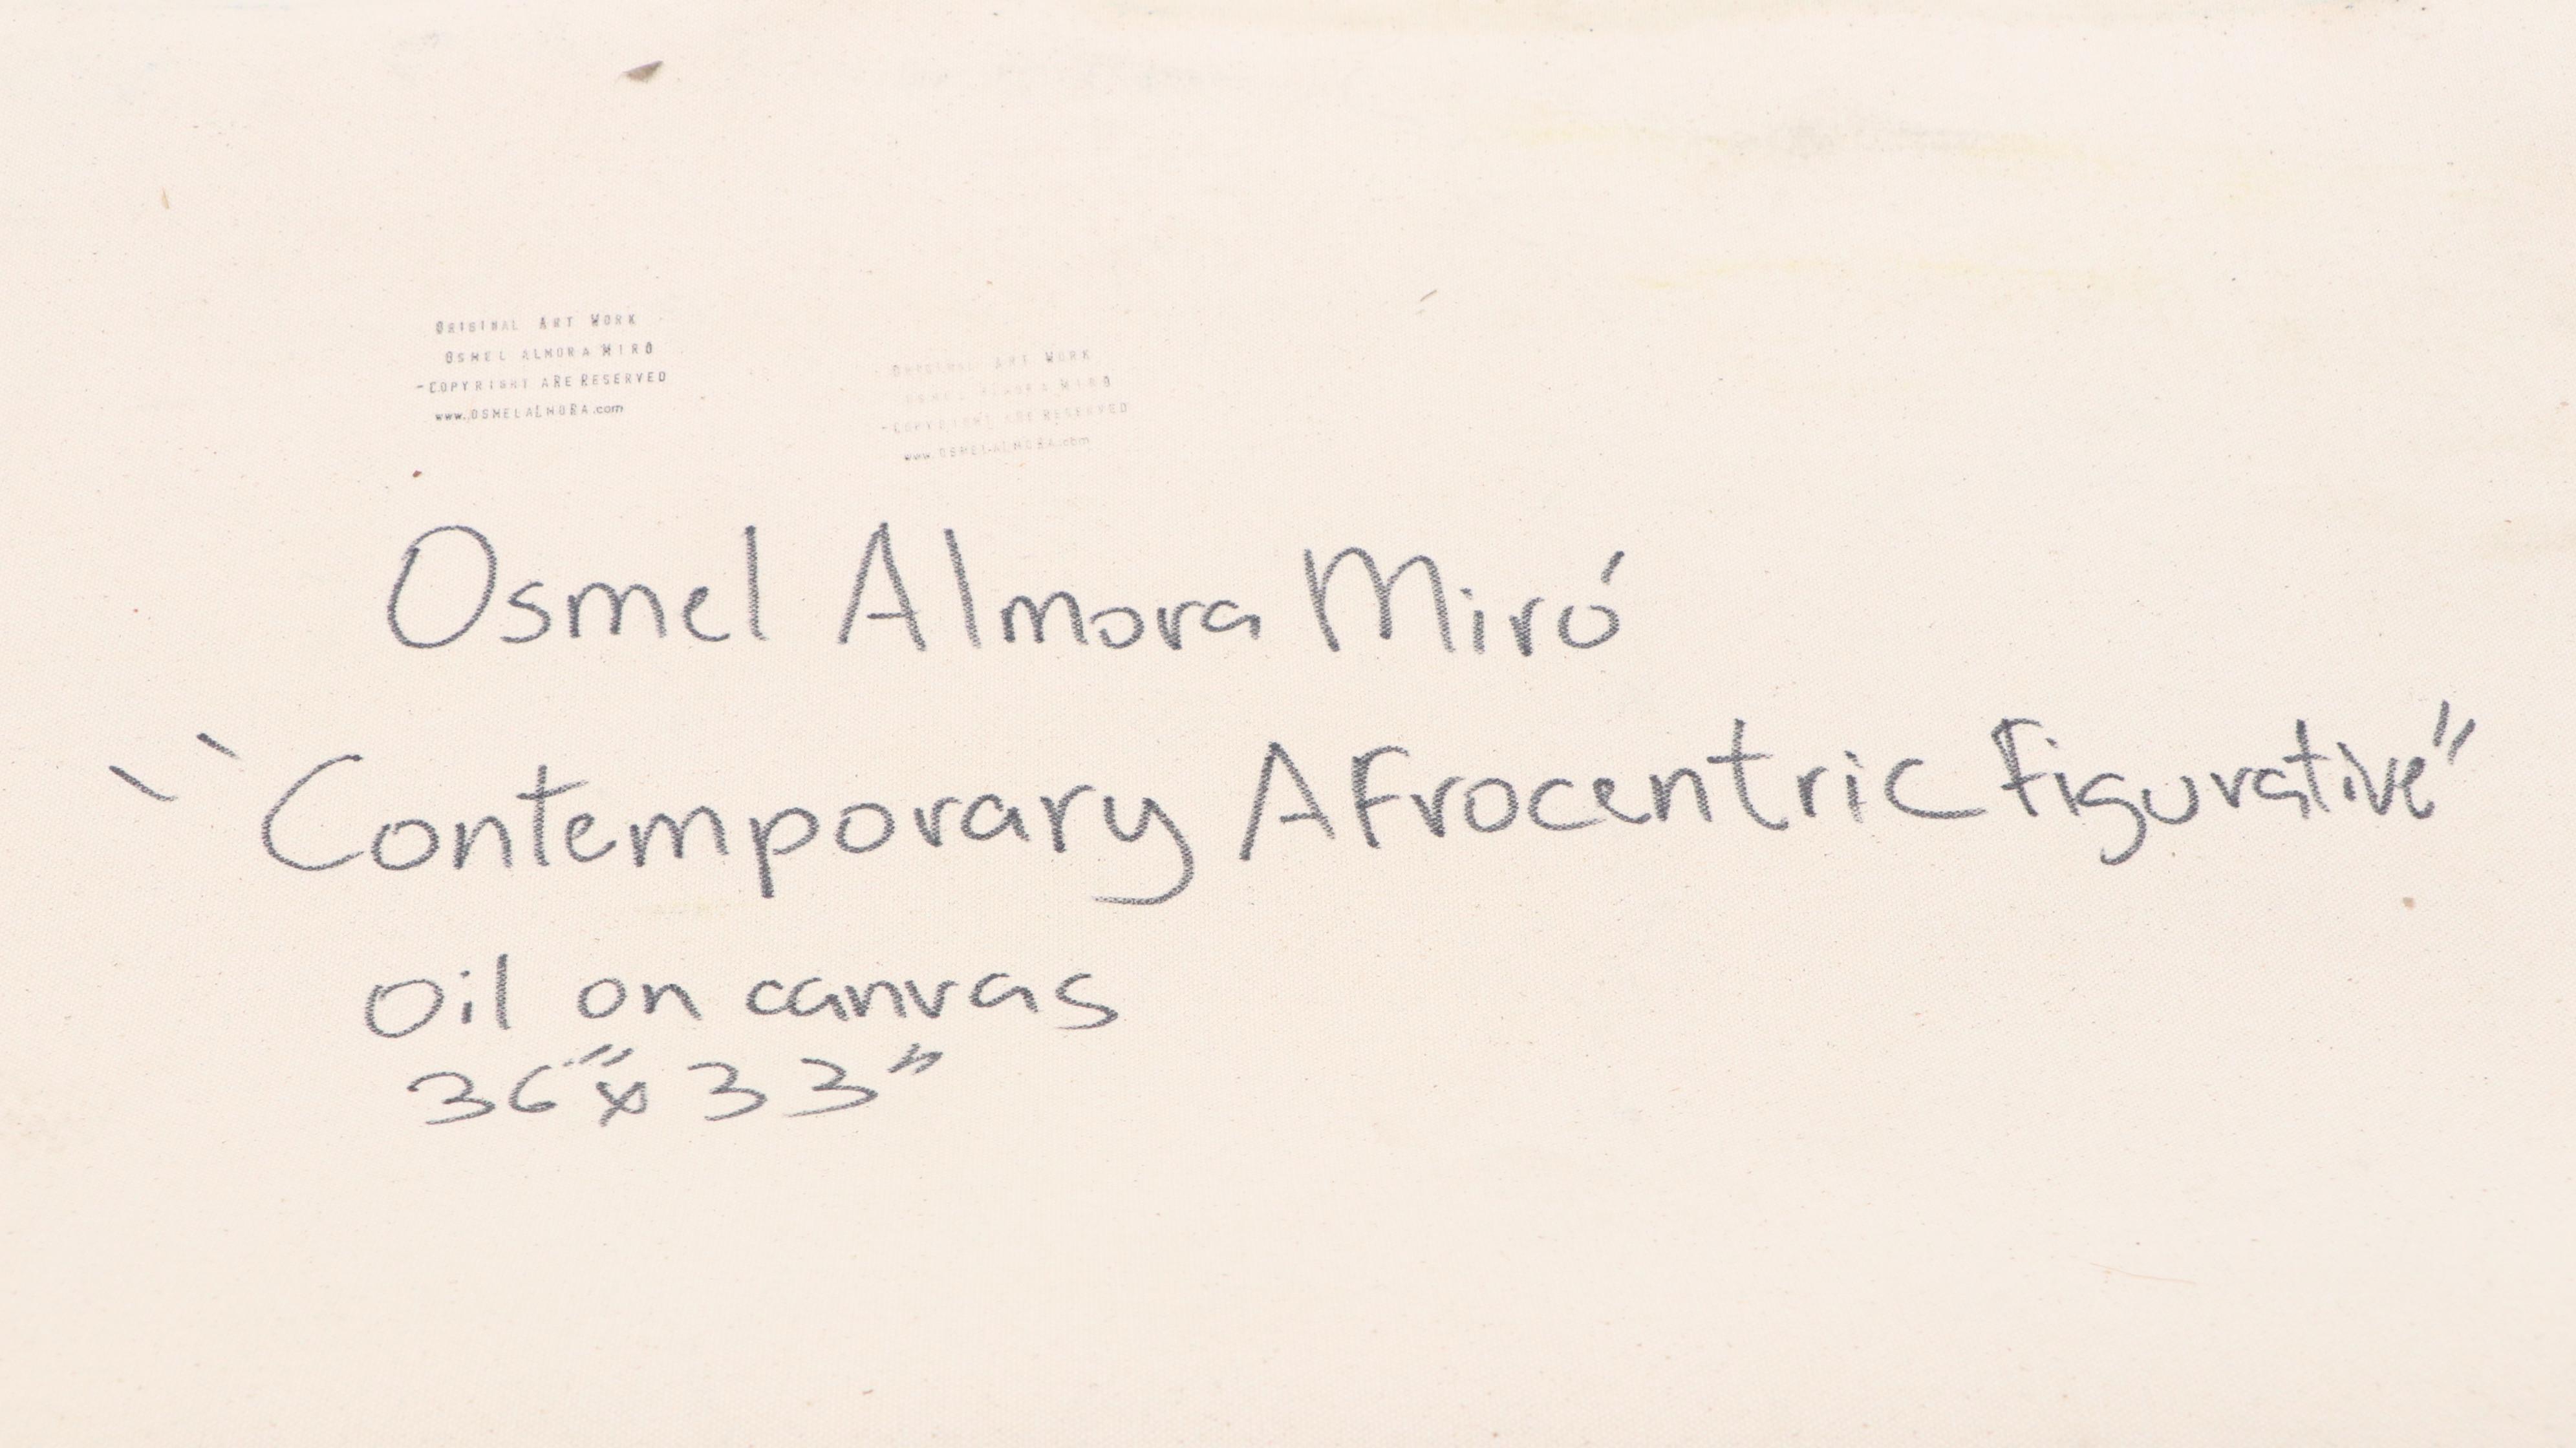 ORIGINAL ART WORK
OSMEL ALMORA MIRÓ
-COPYRIGHT ARE RESERVED
www.OSMELALMORA.com
ORIGINAL ART WORK
OSMEL ALMORA MIRÓ
-COPYRIGHT ARE RESERVED
www.OSMELALMORA.com
Osmel Almora Miró
"Contemporary Afrocentric Figurative"
Oil on canvas
36"x 33"